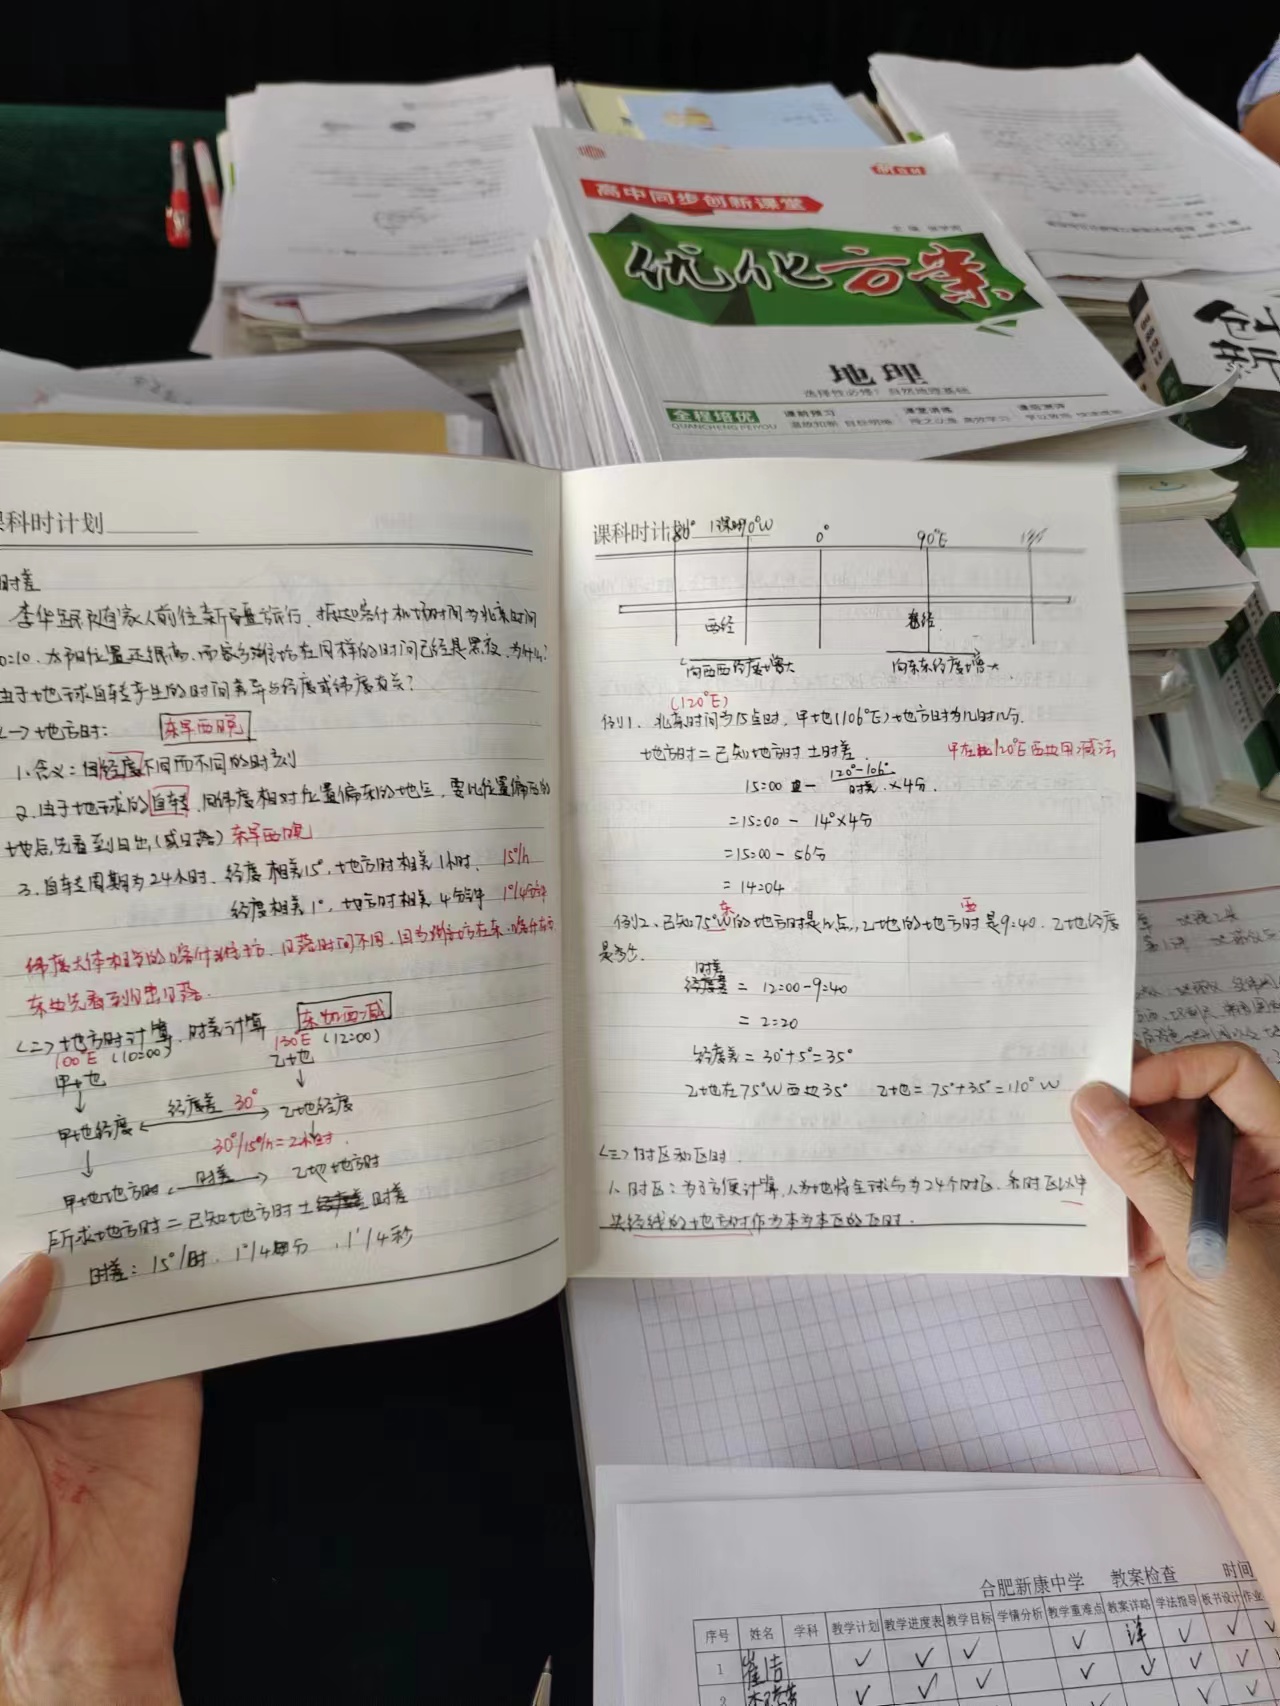 新教材
高中同步创新课堂
优化方案
地理
选择性必修1 自然地理基础
全程培优
QUANCHENG PEIYOU
课前预习
课堂讲练
课后测评
温故知新 目标明晰
创
新
课科时计划
时差
李华跟随家人前往新疆旅行,抵达喀什机场时间为北京时间
0:10,太阳位置还很高,而家乡潍坊在同样的时间已经是黑夜,为什么?
由于地球自转产生的时间差异与经度或纬度有关?
<一>地方时: 东早西晚
1.含义:因经度不同而不同的时刻
2.由于地球的自转,同纬度相对位置偏东的地点,要比位置偏西的
地点先看到日出(或日落)东早西晚
3.自转周期为24小时,经度相差15°,地方时相差1小时, 15°/h
经度相差1°,地方时相差4分钟 1°/4分钟
纬度大体相当的喀什潍坊,日落时间不同,因为潍坊在东
东边先看到日出日落.
<二>地方时计算,时差计算 东加西减
100°E (10:00) 130°E (12:00)
甲地 乙地
甲地经度 经度差 30° 乙地经度
30°/15°/h=2小时.
甲地地方时 时差 乙地地方时
所求地方时=已知地方时±时差
时差:15°/时, 1°/4分, 1'/4秒
课科时计划
0° 90°E
西经
向西西经度增大 向东东经度增大
(120°E)
例1、北京时间为15点时,甲地(106°E)地方时为几时几分.
地方时=已知地方时±时差. 甲在120°E西边用减法
15:00 - 120°-106° ×4分.
时差
=15:00 - 14°×4分
=15:00 - 56分
=14:04
东 西
例2、已知75°W的地方时是12点,乙地的地方时是9:40,乙地经度
是多少.
时差
= 12:00-9:40
= 2:20
经度差=30°+5°=35°
乙地在75°W西边35° 乙地=75°+35°=110°W
<三>时区和区时.
1、时区:为了方便计算,人为地将全球分为24个时区,各时区以中
央经线的地方时作为本区的区时.
合肥新康中学 教案检查 时间
序号 姓名 学科 教学计划 教学进度表 教学目标 学情分析 教学重难点 教案详略 学法指导 板书设计 作业
1 崔洁 ✓ ✓ ✓ ✓ 详 ✓ ✓ ✓
2 ✓ ✓ ✓ ✓ ✓ ✓ ✓ ✓